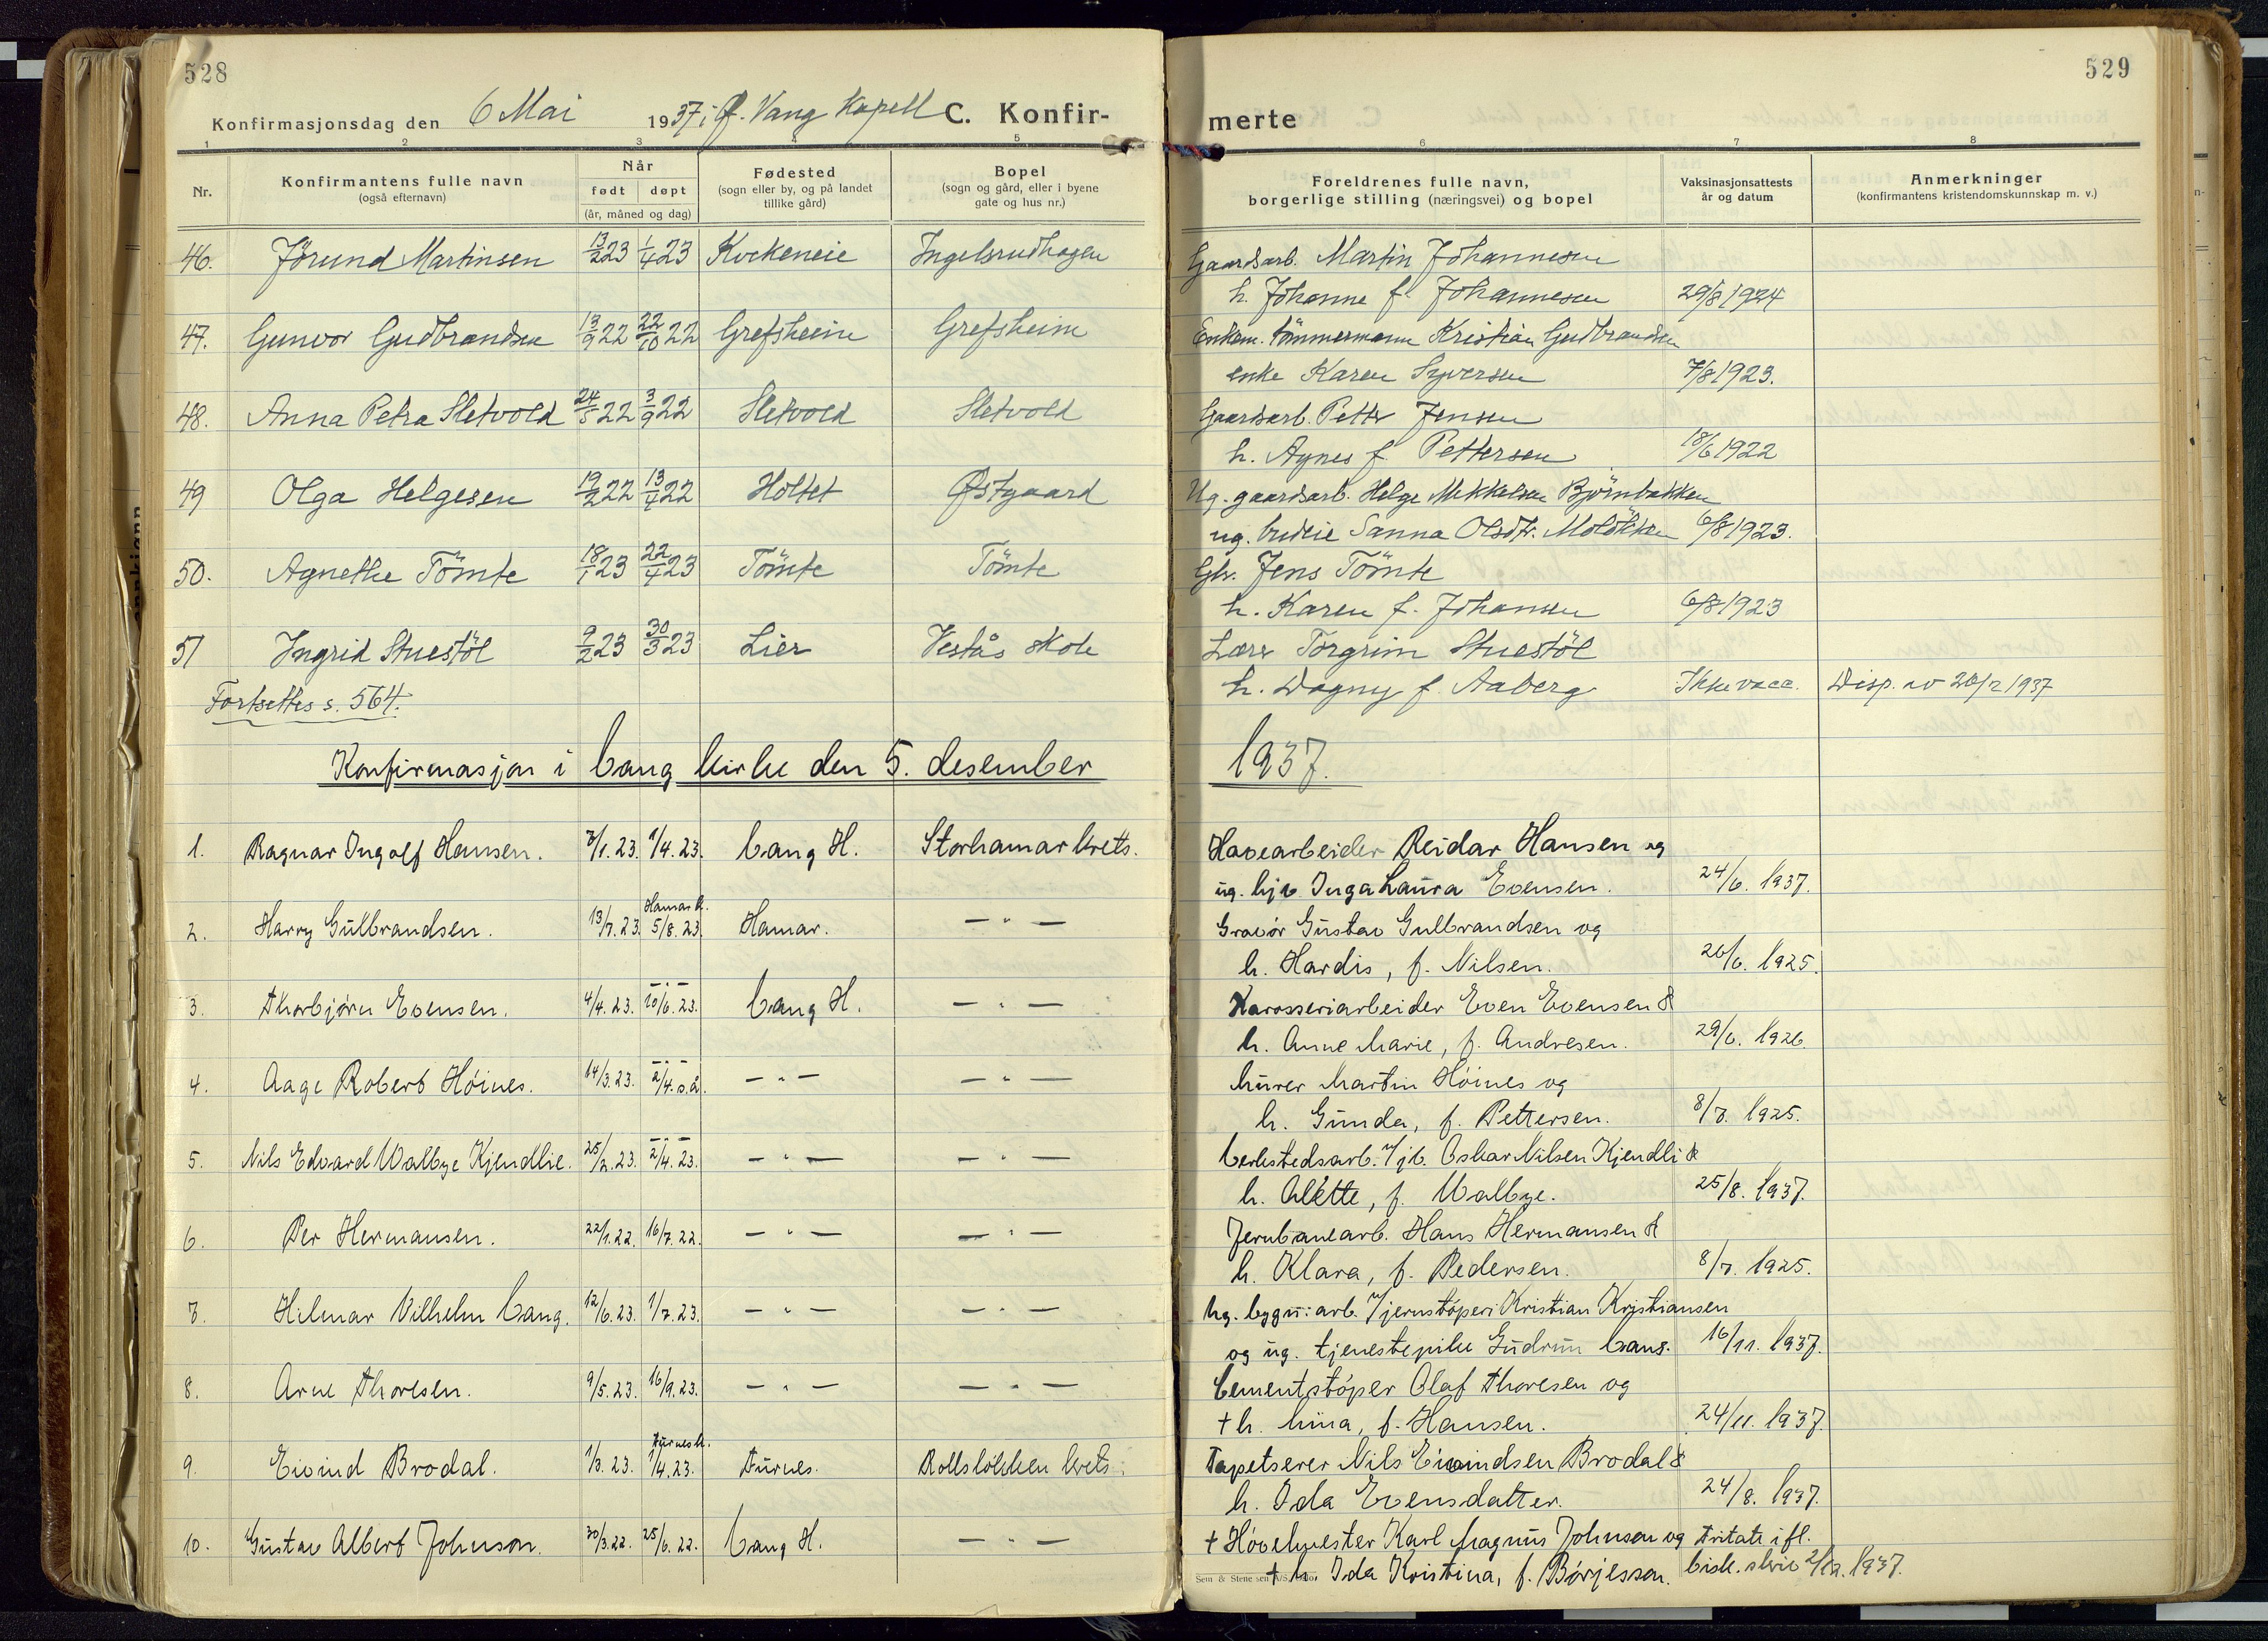 528
529
Konfirmasjonsdag den 6 Mai 1937 i Ø. Vang Kapell C. Konfir-
merte
1 2 3 4 5 6 7 8
Nr. Konfirmantens fulle navn (også efternavn) Når født døpt (år, måned og dag) Fødested (sogn eller by, og på landet tillike gård) Bopel (sogn og gård, eller i byene gate og hus nr.) Foreldrenes fulle navn, borgerlige stilling (næringsvei) og bopel Vaksinasjonsattests år og datum Anmerkninger (konfirmantens kristendomskunnskap m. v.)
46. Jörund Martinsen 13/2 23 1/4 23 Kvekeneie Ingelsrudhagen Gaardsarb. Martin Johannesen
h. Johanne f. Johannesen 29/8 1924
47. Gunvor Gudbrandsen 13/9 22 22/10 22 Grefsheim Grefsheim Enkem. tömmermann Kristian Gudbrandsen
enke Karen Syversen 7/8 1923.
48. Anna Petra Sletvold 24/5 22 3/9 22 Sletvold Sletvold Gaardsarb. Petter Jensen
h. Agnes f. Pettersen 18/6 1922
49 Olga Helgesen 19/2 22 13/4 22 Holtet Østgaard Ug. gaardsarb. Helge Mikkelsen Björnbakken
ug. budeie Sanna Olsdtr. Molökken 6/8 1923.
50. Agnethe Tömte 18/1 23 22/4 23 Tömte Tömte Gbr. Jens Tömte
h. Karen f. Johansen 6/8 1923
51 Ingrid Stuestöl 9/2 23 30/3 23 Lier Vestås skole Lærer Torgrim Stuestöl
h. Dagny f. Aaberg Ikke vacc. Disp. av 20/2 1937
Fortsettes s. 564.
Konfirmasjon i Vang kirke den 5. desember 1937.
1. Ragnar Ingolf Hansen. 7/1. 23. 1/4. 23. Vang H. Storhamar krets. Havearbeider Reidar Hansen og
ug. hjv. Inga Laura Evensen. 24/6. 1937.
2. Harry Gulbrandsen. 13/7. 23. Hamar k. 5/8. 23. Hamar. — " — Gravør Gustav Gulbrandsen og
h. Hardis, f. Nilsen. 26/6. 1925.
3. Thorbjørn Evensen. 4/4. 23. — " — 10/6. 23. Vang H. — " — Karosseriarbeider Even Evensen &
h. Anne Marie, f. Andresen. 29/6. 1926.
4. Aage Robert Höines. 14/3. 23. — " — 2/4. s.å. — " — — " — Murer Martin Höines og
h. Gunda, f. Pettersen. 8/7. 1925.
5. Nils Edvard Walbye Kjendlie. 25/2. 23. — " — 2/4. 23. — " — — " — Verkstedsarb. v/jb. Oskar Nilsen Kjendli &
h. Alette, f. Walbye. 25/8. 1937.
6. Per Hermansen. 22/1. 22. 16/7. 22. — " — — " — Jernbanearb. Hans Hermansen &
h. Klara, f. Pedersen. 8/7. 1925.
7. Hilmar Vilhelm Vang. 12/6. 23. 1/7. 23. — " — — " — Ug. bygn: arb. v/jernstöperi Kristian Kristiansen
og ug. tjenestepike Gudrun Vang. 16/11. 1937.
8. Arne Thoresen. 9/5. 23. 16/9. 23. — " — — " — Cementstöper Olaf Thoresen og
† h. Mina, f. Hansen. 24/11. 1937.
9. Eivind Brodal. 1/3. 23. Furnes k. 1/4. 23. Furnes. Rollslökken krets. Tapetserer Nils Eivindsen Brodal &
h. Ida Evensdatter. 24/8. 1937.
10. Gustav Albert Johnson. 30/3. 22. 25/6. 22. Vang H. — " — † Hovelmester Karl Magnus Johnson og Fritatt ifl.
† h. Ida Kristina, f. Börjesson. bisk. skriv 2/12. 1937.
Sem & Stenersen A/S, Oslo